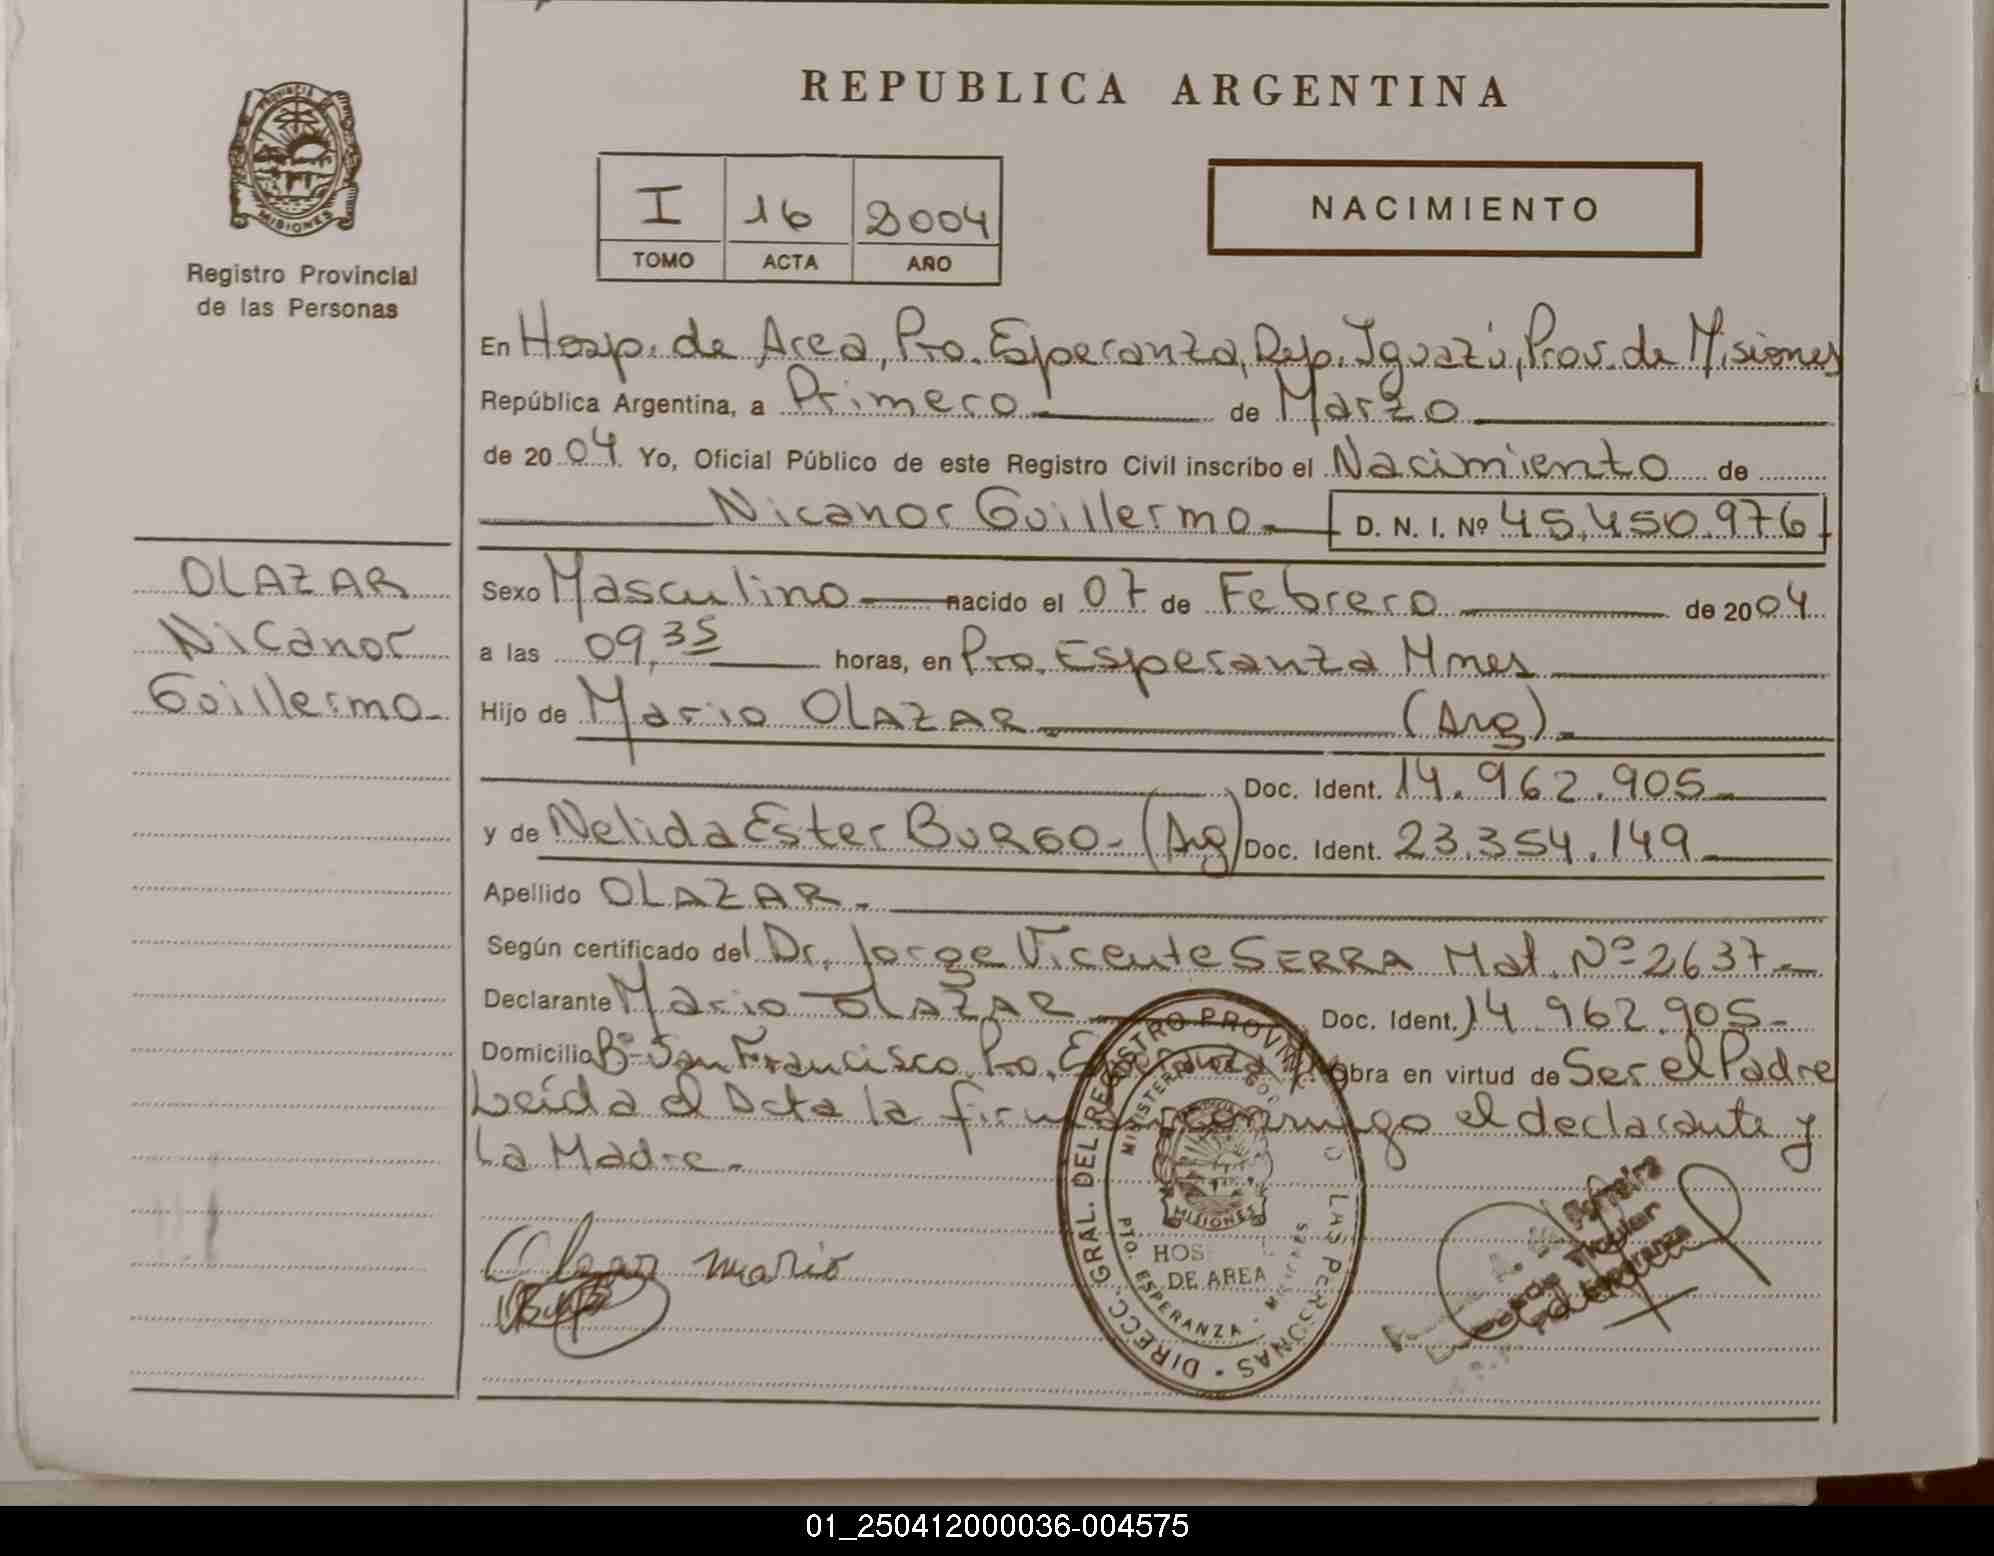 REPUBLICA ARGENTINA
PROVINCIA DE
MISIONES
Registro Provincial
de las Personas
I 16 2004
TOMO ACTA AÑO
NACIMIENTO
En Hosp. de Area, Pto. Esperanza, Dep. Iguazú, Prov. de Misiones
República Argentina, a Primero de Marzo
de 2004 Yo, Oficial Público de este Registro Civil inscribo el Nacimiento de
Nicanor Guillermo D. N. I. Nº 45.450.976
OLAZAR
Nicanor
Guillermo
Sexo Masculino nacido el 07 de Febrero de 2004
a las 09,35 horas, en Pto. Esperanza Mnes
Hijo de Mario OLAZAR (Arg).
Doc. Ident. 14.962.905
y de Nelida Ester BURGO- (Arg) Doc. Ident. 23.354.149
Apellido OLAZAR.
Según certificado del Dr. Jorge Vicente SERRA Mat. Nº 2637
Declarante Mario OLAZAR Doc. Ident. 14.962.905-
Domicilio Bº San Francisco Pto. Esperanza Obra en virtud de Ser el Padre
Leída el Acta la firman conmigo el declarante y
La Madre.
Olazar mario
DIRECC. GRAL. DEL REGISTRO PROVINCIAL LAS PERSONAS
HOS
DE AREA
PTO. ESPERANZA - MISIONES
MISIONES
Titular
01_250412000036-004575